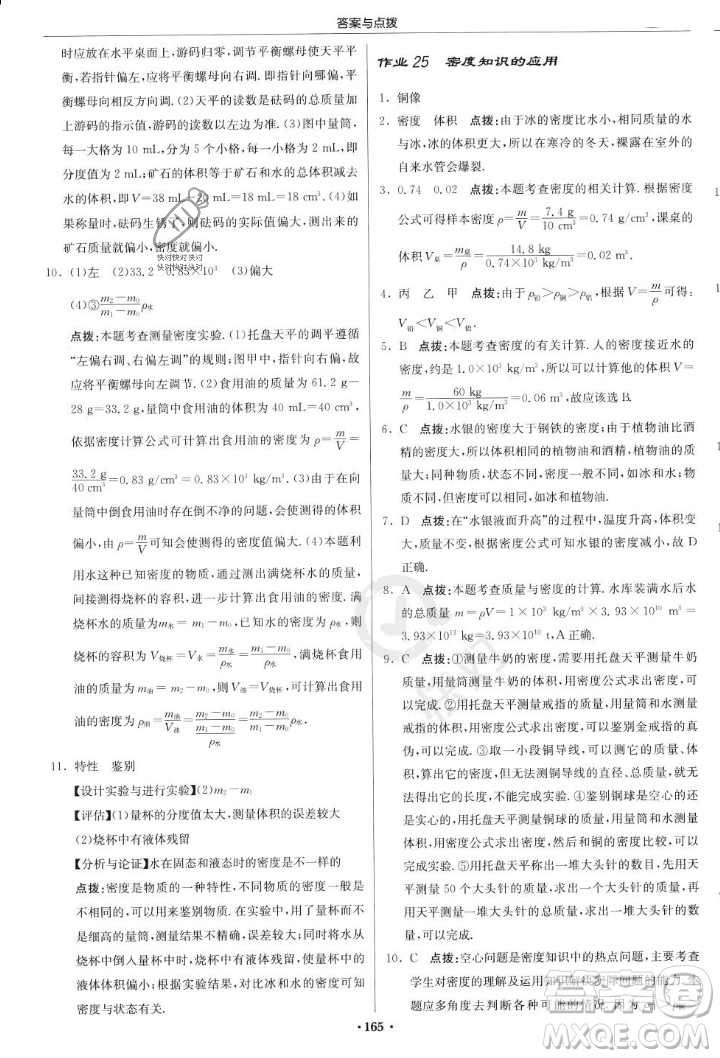 答案与点拨
时应放在水平桌面上,游码归零,调节平衡螺母使天平平
衡,若指针偏左,平衡螺母向右调节;若指针偏右,平
衡螺母向左调.(2)天平的读数是砝码的总质量加上
游码的指示值,游码的读数以左边为准.(3)图中量筒,
10 mL~20 mL,分为5个小格,每小格为2 mL,即
分度值为2 mL;矿石的体积等于水和矿石的总体积减去
水的体积,即V=38 mL-20 mL=18 cm³.(4)如
果称量中,砝码生锈了,砝码的实际值偏大,测出的
矿石质量就偏小,密度偏小.
10. (1)左 (2)33.2 0.83×10³ (3)偏大
(4)③(m₂-m₀)/(m₁-m₀)ρ水
点拨:本题考查测量密度实验.(1)托盘天平的调平遵循
“左偏右调、右偏左调”的规则;图甲中,指针向右偏,故
应将平衡螺母向左调节.(2)食用油的质量为61.2 g-
28 g=33.2 g,食用油的体积为40 mL=40 cm³,
依据密度计算公式可计算出食用油的密度ρ=m/V=
33.2 g/40 cm³=0.83 g/cm³=0.83×10³ kg/m³.(3)食用油
从量筒中倒出时存在倒不净的问题,会使测得的体积偏
小,由ρ=m/V可知会使测得的密度值偏大.(4)本题利
用水这种已知密度的物质,通过测出满烧杯水的质量,
间接测得烧杯的容积,进而测得食用油的密度.满
烧杯水的质量为m水=m₁-m₀,水的密度为ρ水,
烧杯的容积为V烧杯=V水=(m₁-m₀)/ρ水,满烧杯食用
油的质量为m油=m₂-m₀,则V油=V烧杯,可计算出食用
油的密度为ρ油=m油/V油=(m₂-m₀)/(m₁-m₀)ρ水.
11. 特性 鉴别
【设计实验与进行实验】(2)m₂-m₁
【评估】(1)量杯的分度值太大,测量体积的误差较大
(2)烧杯中有液体残留
【分析与论证】水在固态和液态时的密度是不一样的
点拨:密度是物质的一种特性,不同物质的密度一般是
不同的,可用来鉴别物质.在实验中,用了量杯而不
是细高的量筒,误差太大.且将量杯中的液体倒入
烧杯中时,烧杯内壁会残留部分液体,使测得的体积
偏小.根据实验结果,可以得出同种物质的
密度与状态有关.
作业25 密度知识的应用
1. 铜像
2. 密度 体积 点拨:由于冰的密度比水小,相同质量的水
与冰,冰的体积更大,所以在寒冷的冬天,裸露在室外的
自来水管会爆裂.
3. 0.74 0.02 点拨:本题考查密度的相关计算.根据密度
公式可得样本密度ρ=m/V=7.4 g/10 cm³=0.74 g/cm³,课桌的
体积V桌=m桌/ρ=14.8 kg/(0.74×10³ kg/m³)=0.02 m³.
4. 丙 乙 甲 点拨:由于ρ铅>ρ铜>ρ铝,根据V=m/ρ可得:
V铅<V铜<V铝.
5. B 点拨:本题考查密度的应用.中学生的密度与水的密
度接近,约是1.0×10³ kg/m³,根据公式计算得体积V=
m/ρ=60 kg/(1.0×10³ kg/m³)=0.06 m³,故应该选B.
6. C 点拨:水银的密度大于钢铁的密度;由于植物油比酒
精的密度大,所以同体积的植物油和酒精,植物油的质
量大;同种物质,状态不同,密度一般不同,如冰和水;物
质不同,但密度可能相同,如冰和植物油.
7. D 点拨:在“水银液面升高”的过程中,温度升高,体积变
大,质量不变,根据密度公式可知水银的密度变小,故D
正确.
8. A 点拨:本题考查质量与密度的计算.水库装满水后水
的总质量m=ρV=1×10³ kg/m³×3.93×10¹⁰ m³=
3.93×10¹³ kg=3.93×10¹⁰ t,A正确.
9. C 点拨:①测量牛奶的密度,需要用托盘天平测量牛奶
的质量,用量筒测量牛奶的体积,用密度公式求出密度,可以
完成.②用托盘天平测量戒指的质量,用量筒和水测量戒指
的体积,用密度公式求出密度,可以鉴别金戒指的真
伪,可以完成.③取一小段铜导线,可以测出它的质量和
体积,但无法得知一捆铜导线的质量,无法完成测定一捆
铜导线的长度,所以不能完成实验.④鉴别铜球是空心的还是
实心的,用托盘天平测量铜球的质量,用量筒和水测量体
积,用密度公式求出密度,跟铜的密度进行比较,可以
完成实验.⑤用托盘天平称出一堆大头针的数目,先用
天平测量50个大头针的质量,求出一个大头针的质量,
再用天平测量一堆大头针的质量,求出一堆大头针的数
量,可以完成.
10. C 点拨:空心问题是密度知识中的热点问题,主要考查
学生对密度的理解及运用知识解决实际问题的能力.本
题应多角度去判断各种可能的情况.因为
· 165 ·